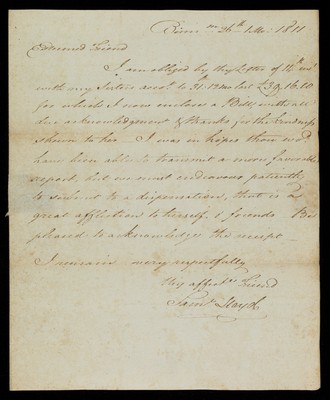 Birm.m 26th 1 Mo. 1811
Esteemed Friend
I am obliged by thy Letter of 14th ins.t
with my Sisters acco.t to 31st 12 mo last £39.16.10
for which I now enclose a Bill, with all
due acknowledgement & thanks for the kindness
shewn to her I was in hopes thou wo.d
have been able to transmit a more favorable
report, but we must endeavour patiently
to submit to a dispensation, that is a
great affliction to herself & friends Be
pleased to acknowledge the receipt
I remain very respectfully
thy affect.e Friend
Sam.l Lloyd